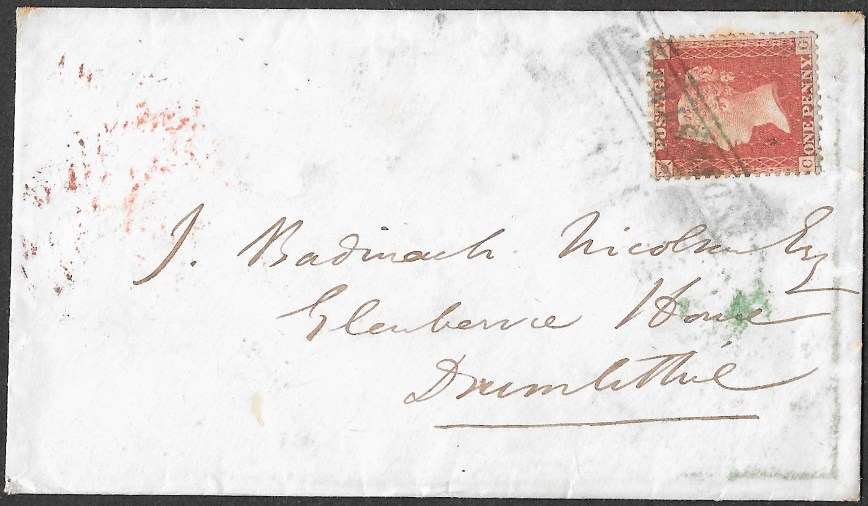 POSTAGE
ONE PENNY
G G
J. Badinach Nicolson Esq
Glenbervie House
Drumlithie